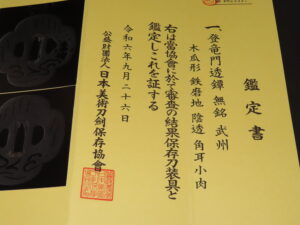 鑑定書
一、登竜門透鐔 無銘 武州
木瓜形 鉄磨地 陰透 角耳小肉
右は當協會に於て審査の結果保存刀装具と
鑑定しこれを証する
令和六年九月二十六日
公益財團法人 日本美術刀劍保存協會